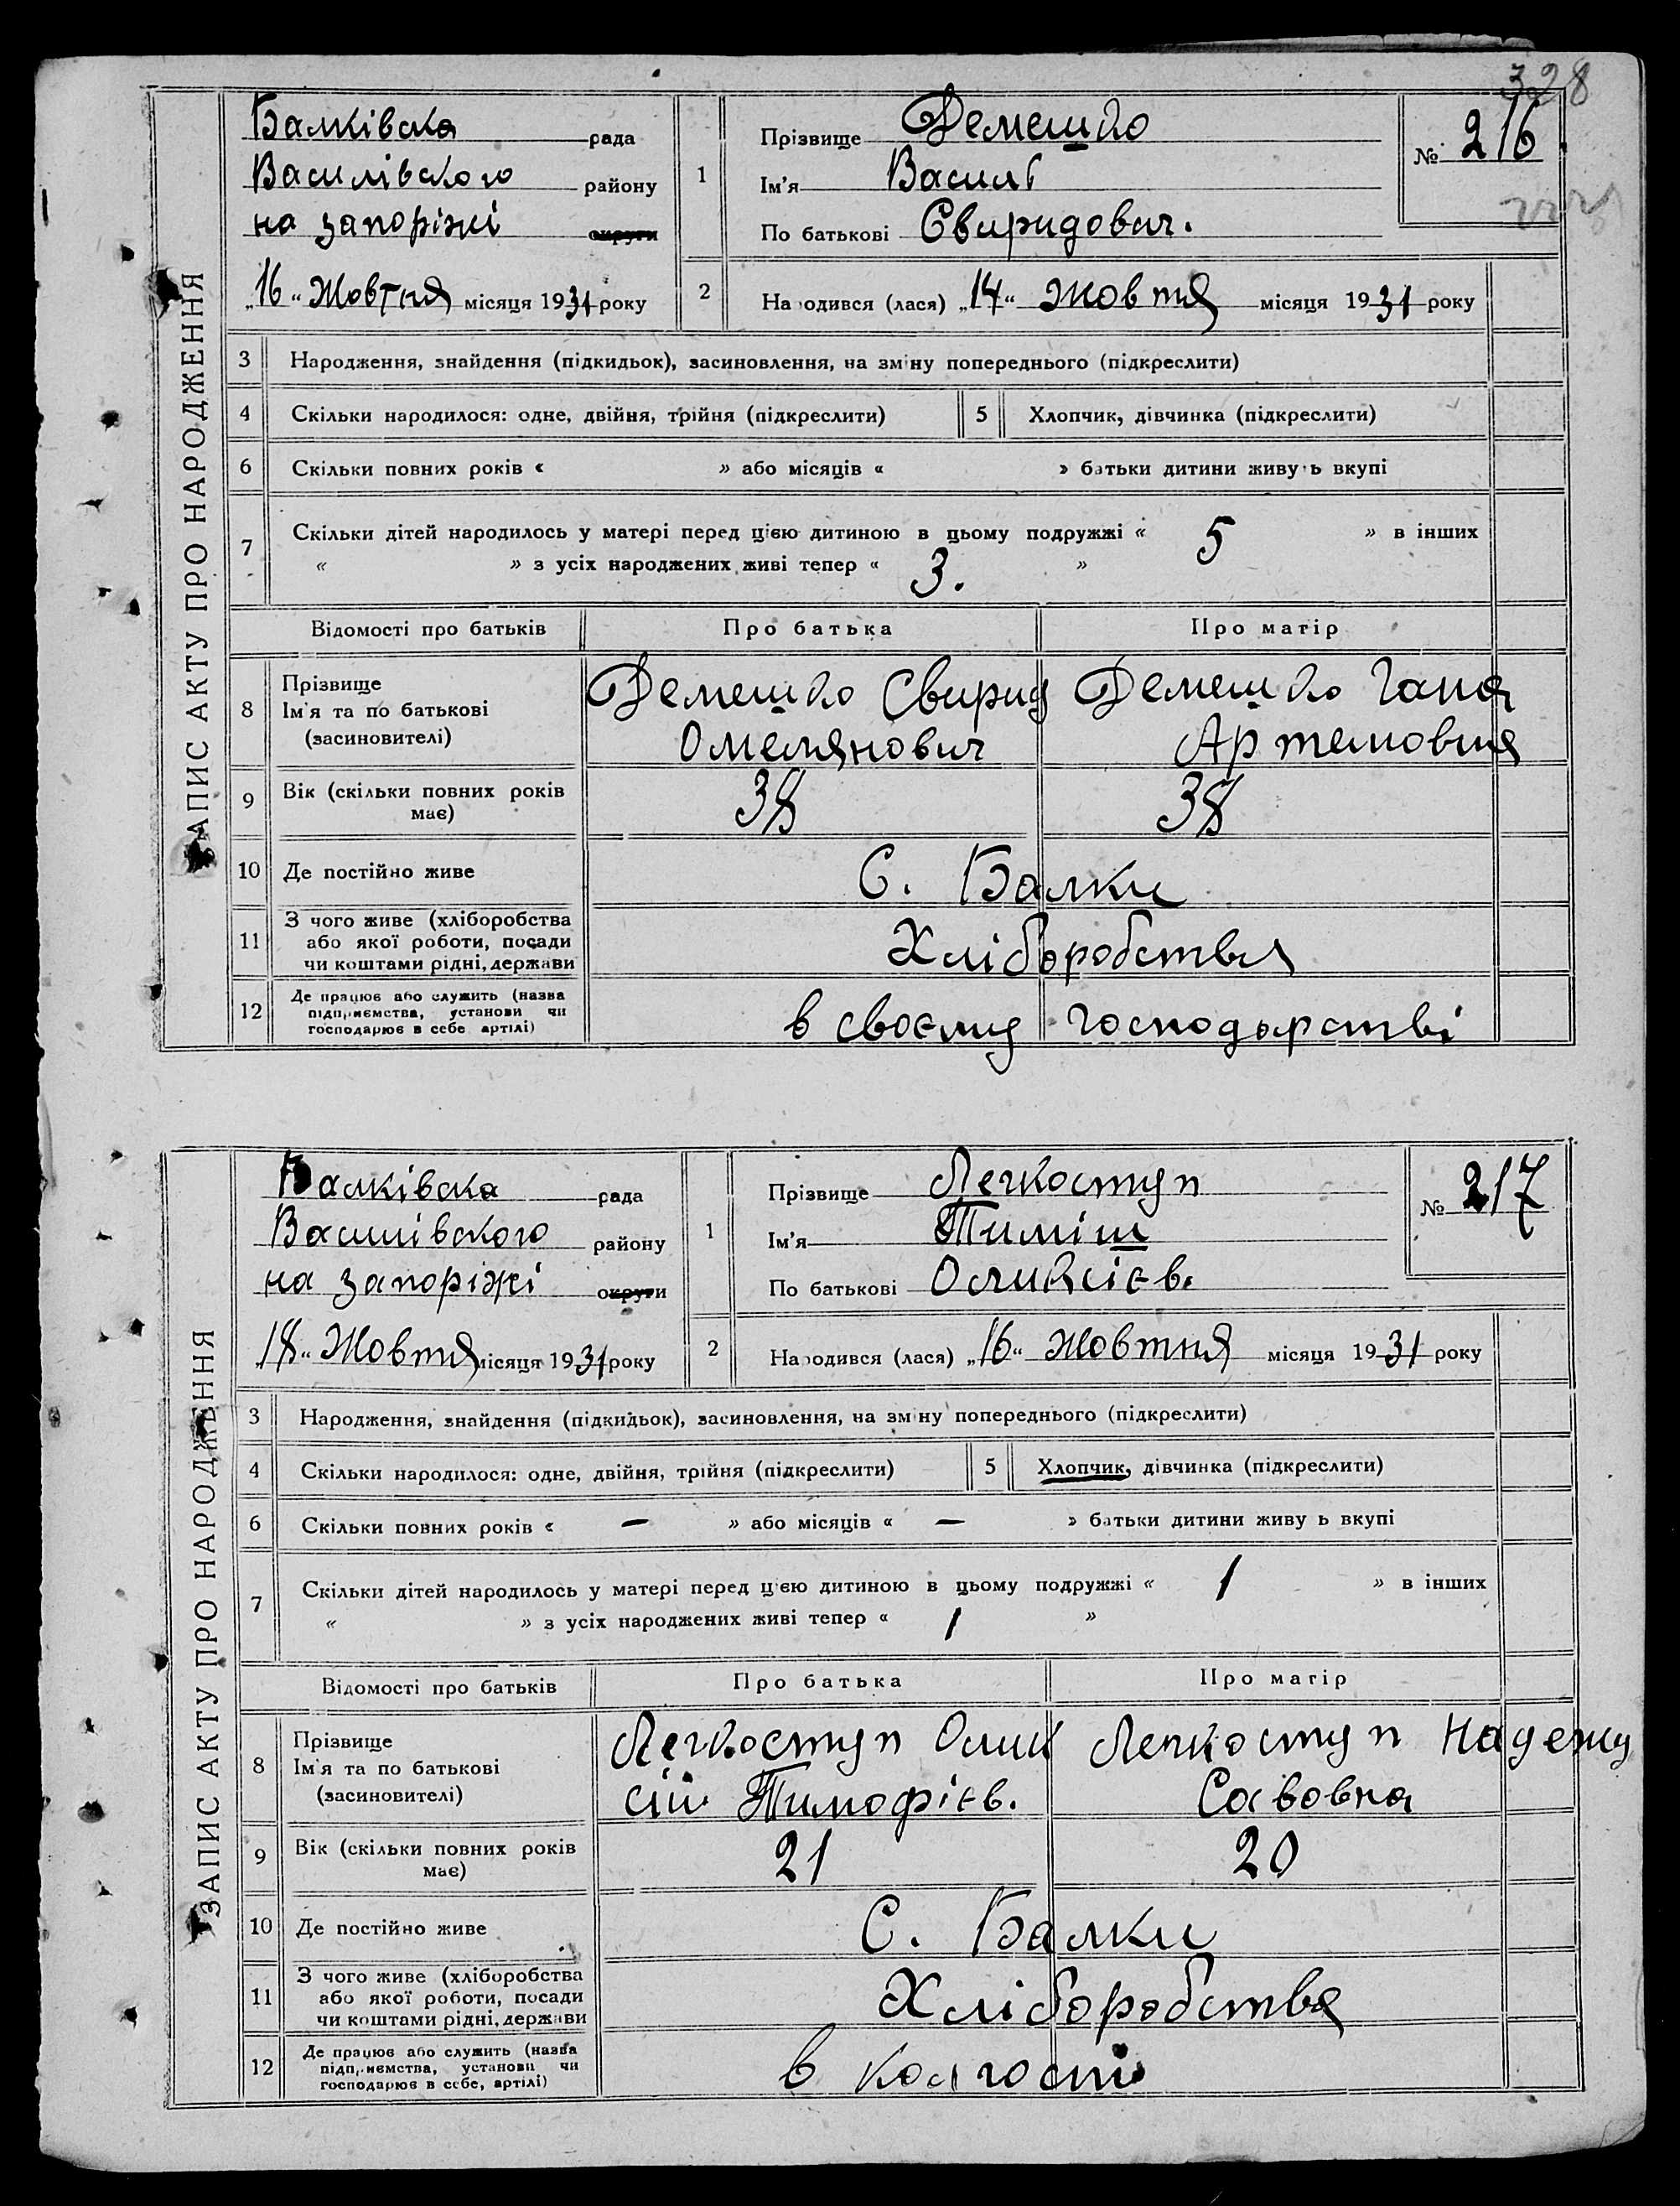 328
ЗАПИС АКТУ ПРО НАРОДЖЕННЯ
Балківська рада
Василівского району
на запоріжі округи
„16“ Жовтня місяця 1931 року
1
Прізвище Демешко
Ім'я Василь
По батькові Свиридович.
№ 216
2
Народився (лася) „14“ жовтя місяця 1931 року
3 Народження, знайдення (підкидьок), засиновлення, на зміну попереднього (підкреслити)
4 Скільки народилося: одне, двійня, трійня (підкреслити) 5 Хлопчик, дівчинка (підкреслити)
6 Скільки повних років « » або місяців « » батьки дитини живуть вкупі
7 Скільки дітей народилось у матері перед цією дитиною в цьому подружжі « 5 » в інших
« » з усіх народжених живі тепер « 3. »
Відомості про батьків Про батька Про матір
8 Прізвище
Ім'я та по батькові
(засиновителі)
Демешко Свирид
Омелянович
Демешко Ганя
Артемовня
9 Вік (скільки повних років
має)
38 38
10 Де постійно живе С. Балки
11 З чого живе (хліборобства
або якої роботи, посади
чи коштами рідні, держави
Хліборобства
12 Де працює або служить (назва
підприємства, установи чи
господарює в себе артілі)
в своєму господарстві
ЗАПИС АКТУ ПРО НАРОДЖЕННЯ
Балківська рада
Василівского району
на запоріжі округи
„18“ Жовтя місяця 1931 року
1
Прізвище Легкоступ
Ім'я Тиміш
По батькові Оликсієв.
№ 217
2
Народився (лася) „16“ жовтня місяця 1931 року
3 Народження, знайдення (підкидьок), засиновлення, на зміну попереднього (підкреслити)
4 Скільки народилося: одне, двійня, трійня (підкреслити) 5 Хлопчик, дівчинка (підкреслити)
6 Скільки повних років « — » або місяців « — » батьки дитини живу ь вкупі
7 Скільки дітей народилось у матері перед цією дитиною в цьому подружжі « 1 » в інших
« » з усіх народжених живі тепер « 1 »
Відомості про батьків Про батька Про матір
8 Прізвище
Ім'я та по батькові
(засиновителі)
Легкоступ Олик
сій Тимофієв.
Легкоступ Надежд
Савовна
9 Вік (скільки повних років
має)
21 20
10 Де постійно живе С. Балки
11 З чого живе (хліборобства
або якої роботи, посади
чи коштами рідні, держави
Хліборобства
12 Де працює або служить (назва
підприємства, установи чи
господарює в себе, артілі)
в колгоспі